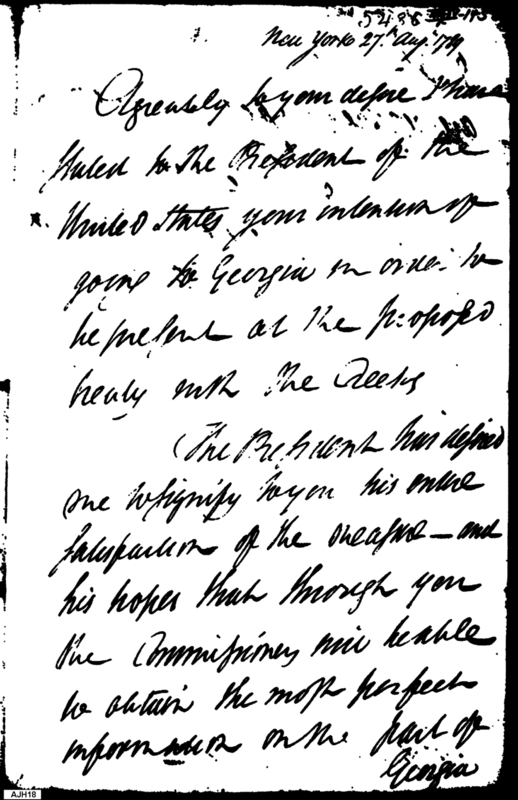 New York 27th Augt 1789
Agreeably to your desire I have
stated to the President of the
United States your intention of
going to Georgia in order to
be present at the proposed
treaty with the Creeks
The President has desired
me to signify to you his entire
satisfaction of the measure — and
his hopes that through you
the Commissioners will be able
to obtain the most perfect
information on the part of
Georgia
AJH18